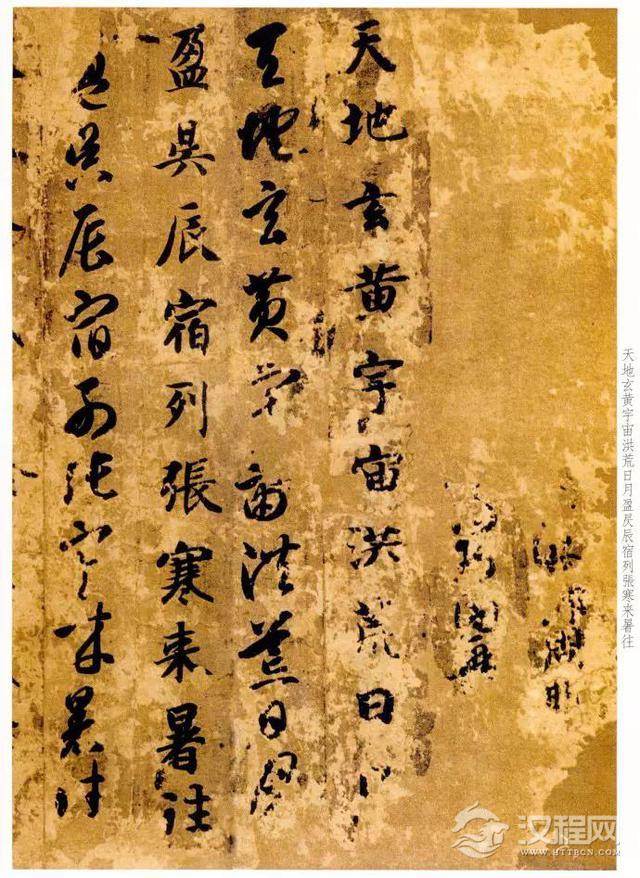 天地玄黄宇宙洪荒日月盈昃辰宿列張寒来暑往
天地玄黄宇宙洪荒日月
天地玄黄宇宙洪荒日月
盈昃辰宿列張寒来暑往
盈昃辰宿列張寒来暑往
汉程网
WWW.HTTPCN.COM